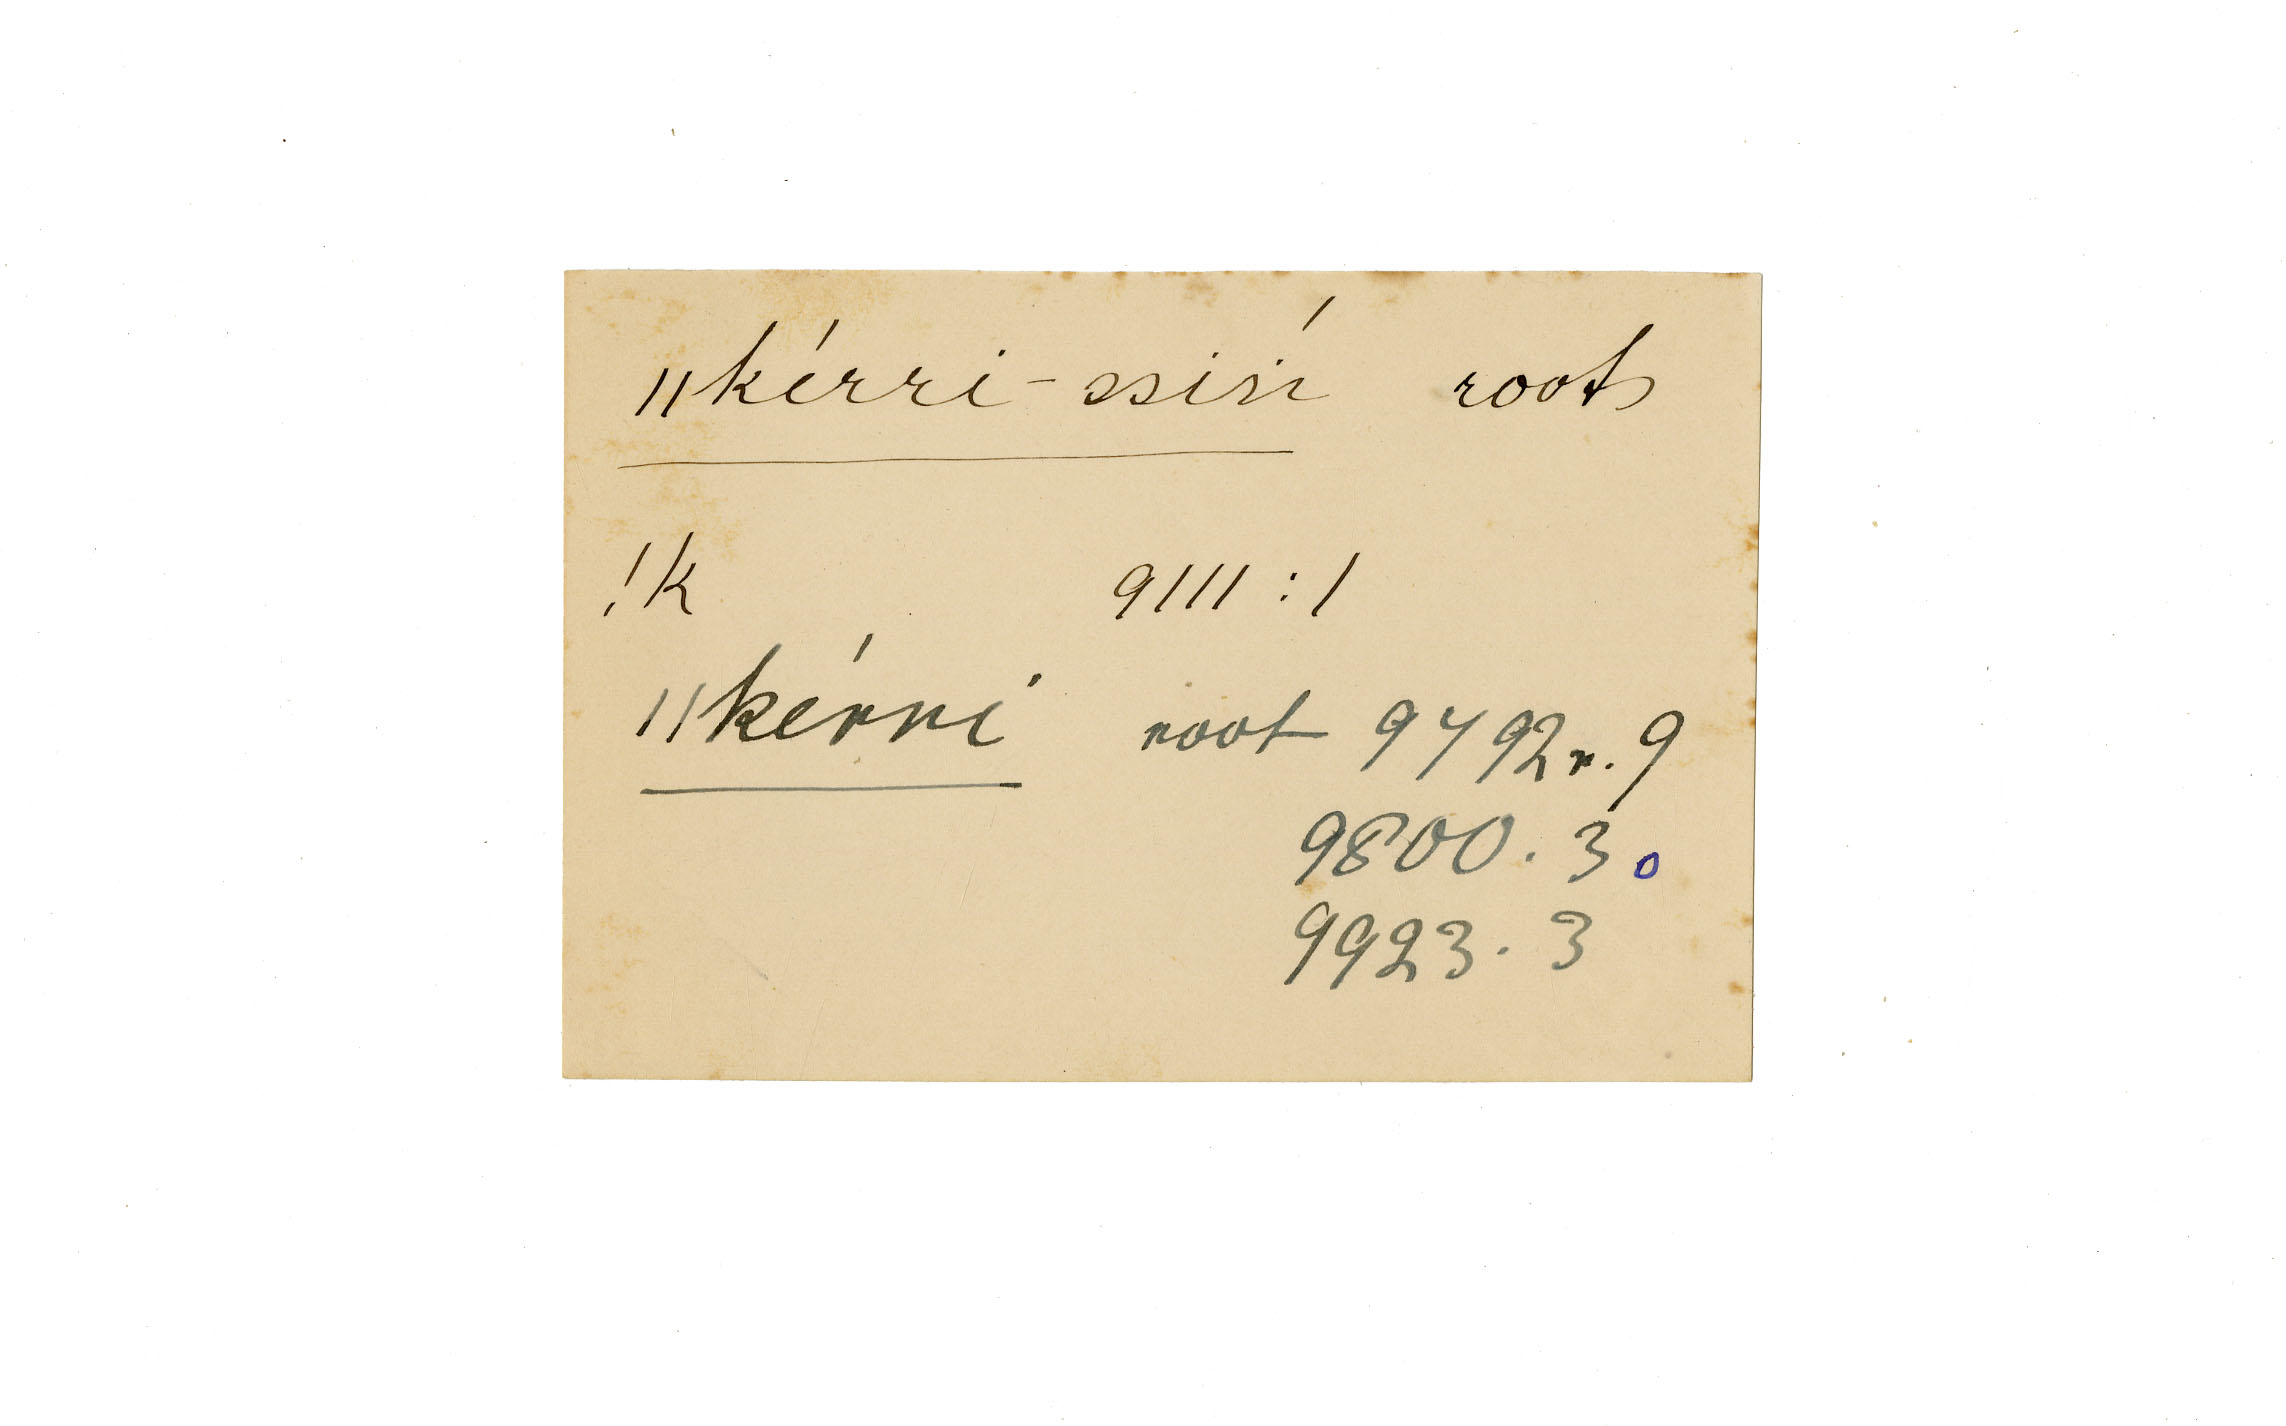 ǁkérri-ssiń roots
!k 9111:1
ǁkérri root 9792r.9
9800.3.
9923.3